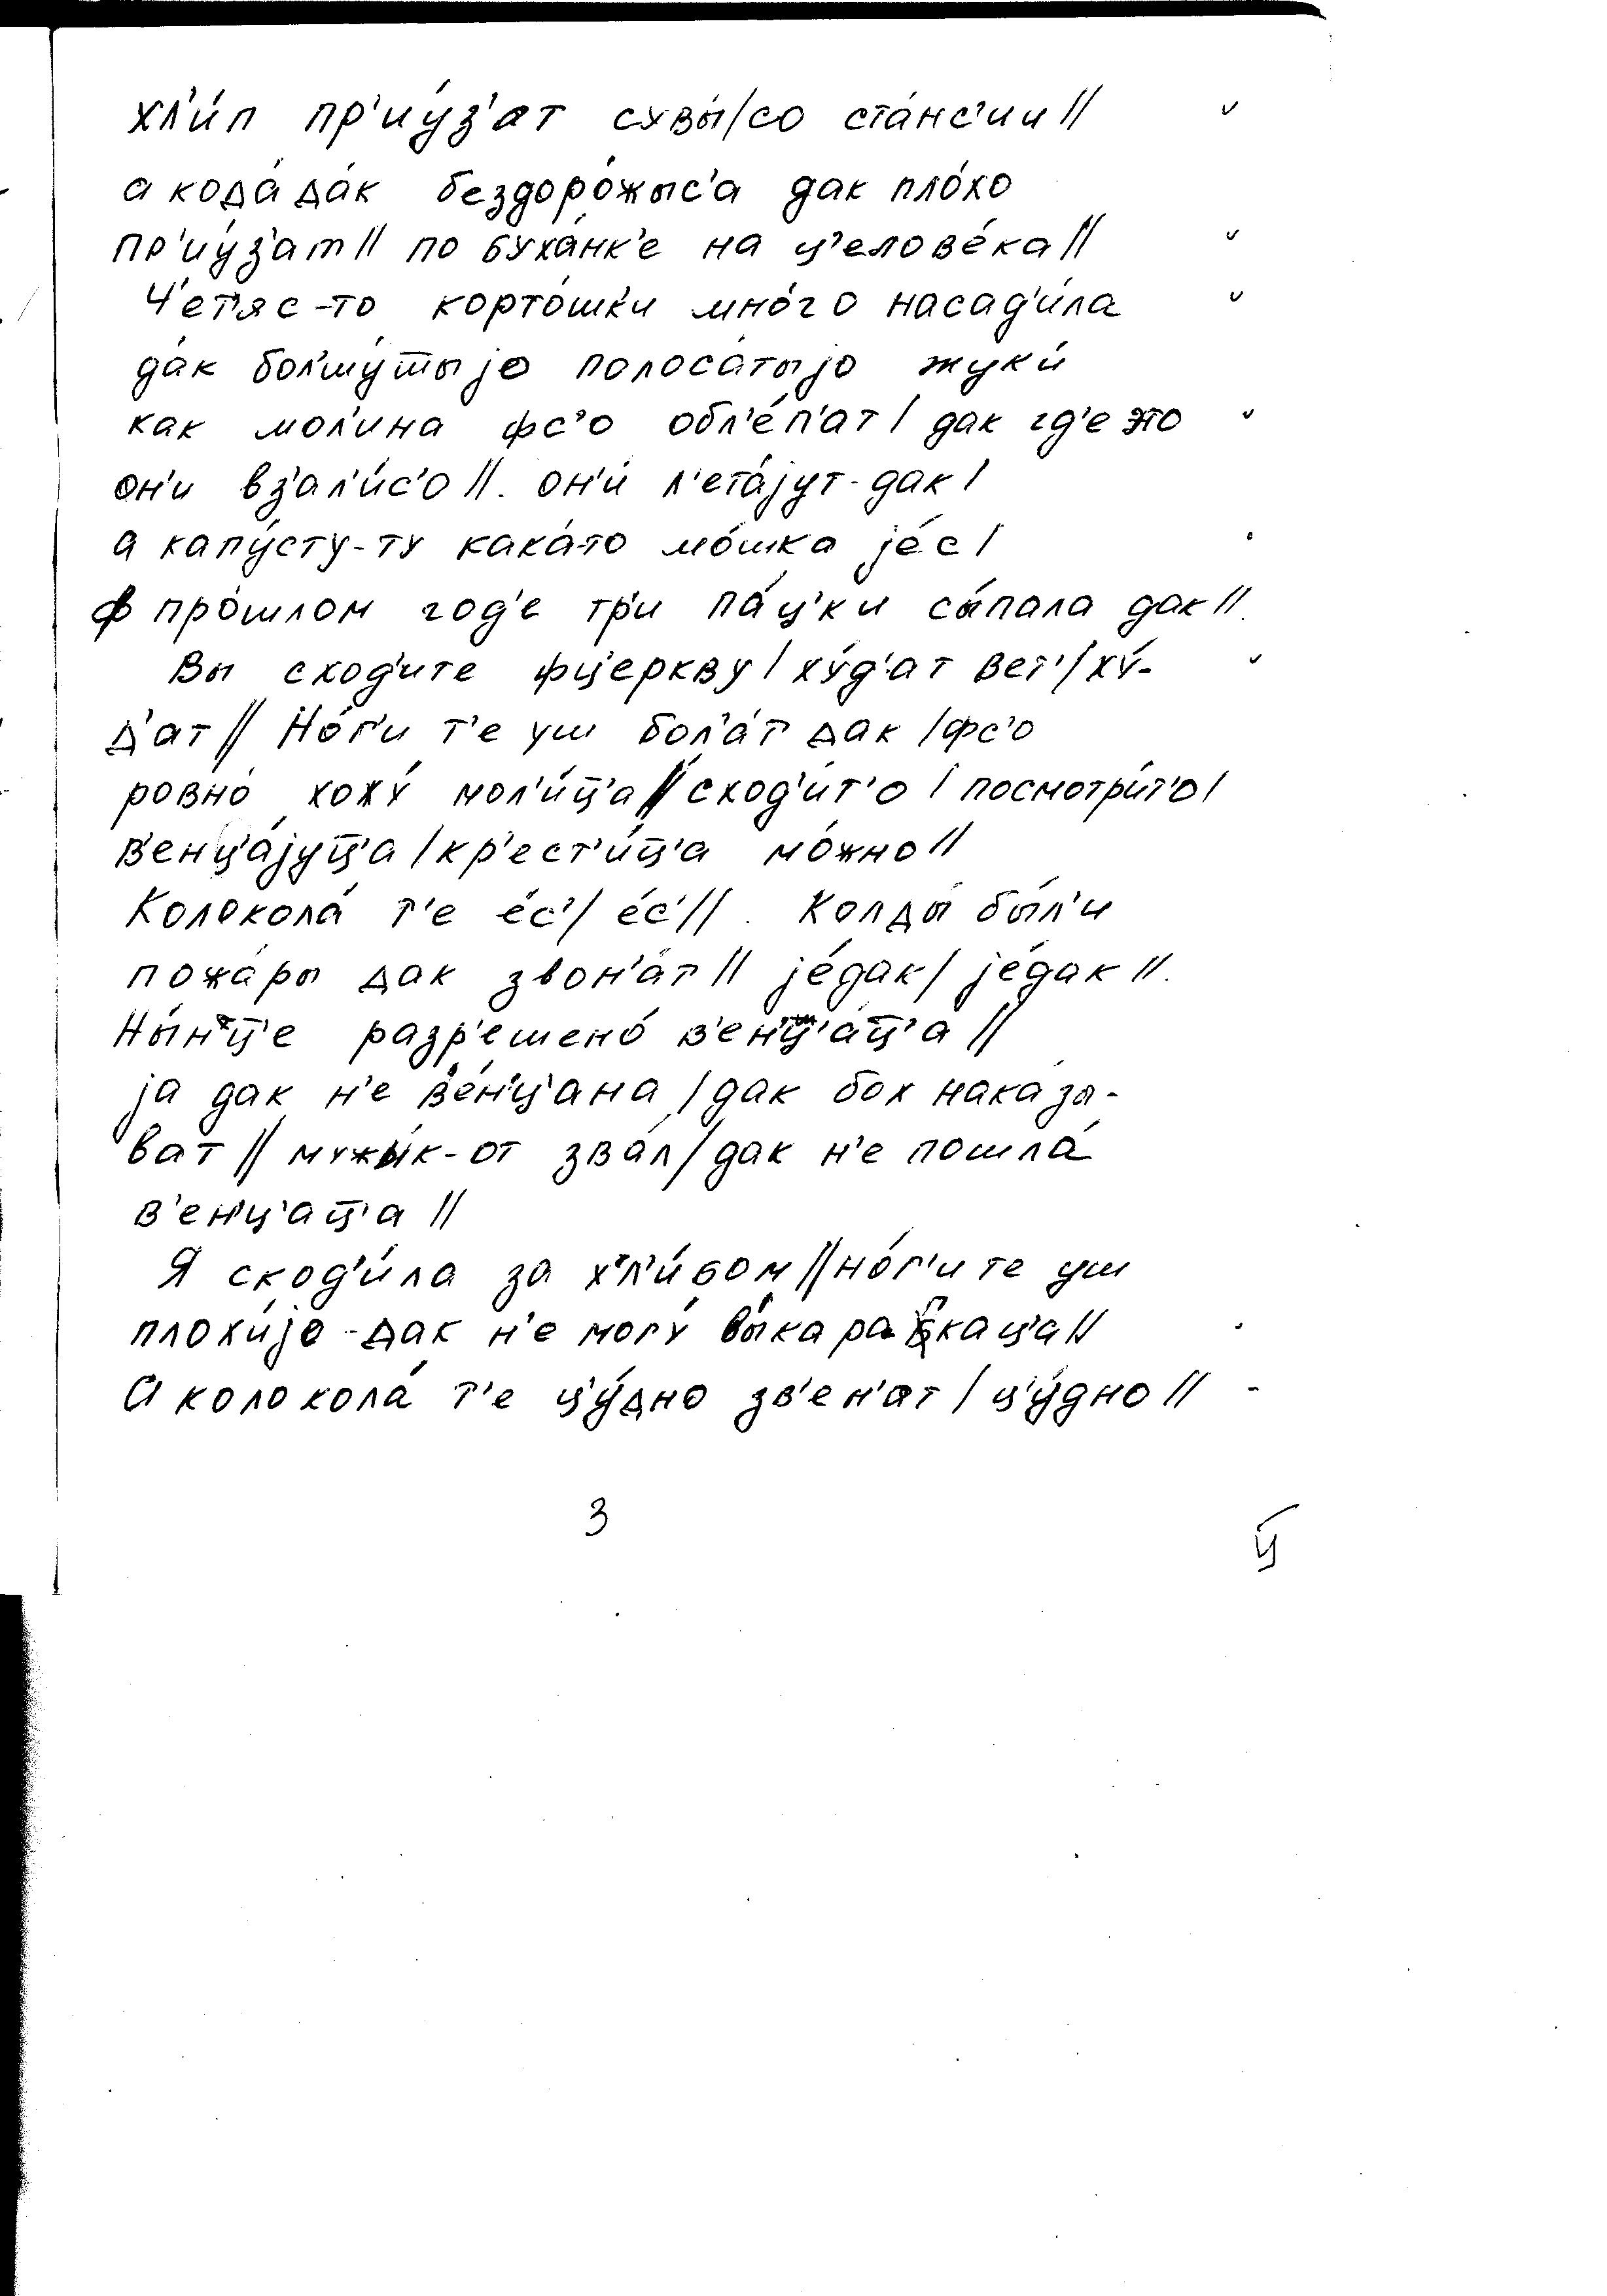 хл'и́п пр'иу́з'ат сузвы́/со ста́нс'ии//
а кода́ да́к бездоро́жыс'а дак пло́хо
пр'иу́з'ат// по буха́нк'е на ц'елове́ка//
Ч'ет'яс-то корто́шк'и мно́го насад'и́ла
да́к бол'шу́тыjо полоса́тыjо жук'и́
как мол'и́на фс'о обл'е́п'ат/ дак гд'е это
он'и вз'ал'и́с'о//. он'и́ л'ета́jут-дак/
а капу́сту-ту кака́-то мо́шка jе́с/
ф про́шлом год'е тр'и па́ц'ки сы́пала дак//.
Вы сход'ите фц'еркву/ ху́д'ат вет'/ху́-
д'ат// Но́г'и т'е уш бол'а́т дак/фс'о
ровно́ хожу́ мол'и́ц'а//сход'и́т'о/посмотр'и́т'о/
в'енц'а́jуц'а/кр'ест'и́ц'а мо́жно//
Колокола́ т'е е́с'/ е́с'//. Колды́ бы́л'и
пожа́ры дак звон'а́т// jе́дак/ jе́дак//.
Ны́нц'е разр'ешено́ в'енц'а́ц'а//
jа дак н'е в'е́нц'ана/дак бох нака́зы-
ват// мужы́к-от зва́л/дак н'е пошла́
в'енц'ац'а//
Я сход'и́ла за хл'и́бом//но́г'и те уш
плохи́jо-дак н'е могу́ вы́карабкаца//
А колокола́ т'е ц'у́дно зв'ен'ат/ц'у́дно//
3